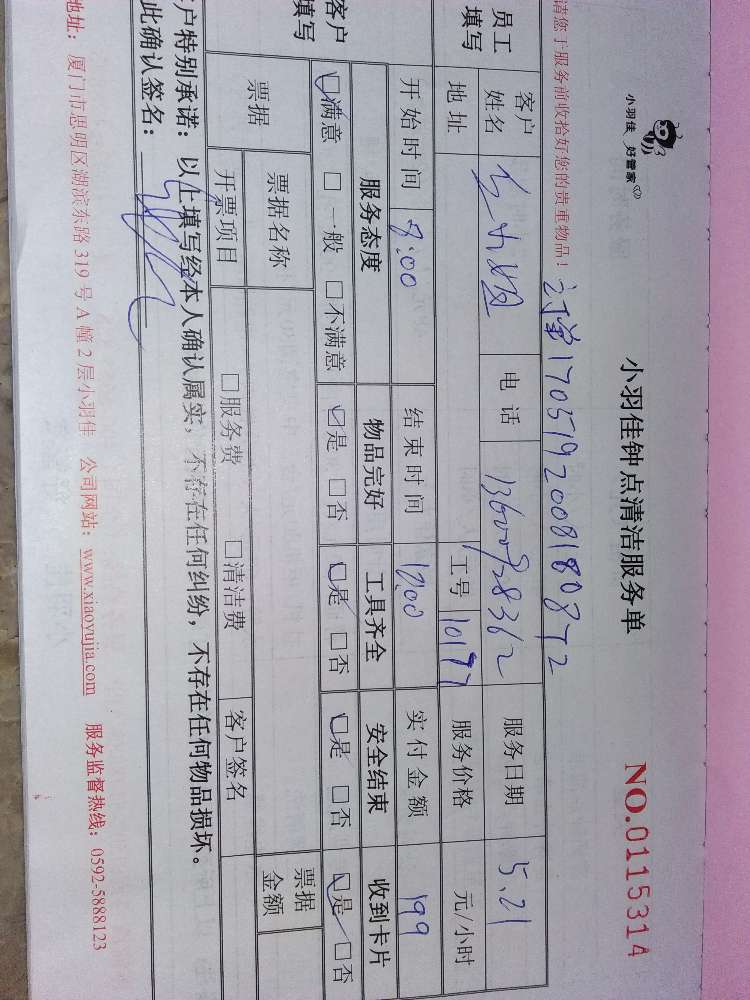 小羽佳 好管家
小羽佳钟点清洁服务单
NO.0115314
请您于服务前收拾好您的贵重物品!
员工填写
客户姓名
电话
服务日期 5.21
地址
工号 10177
服务价格 元/小时
开始时间 8:00
结束时间 12:00
实付金额 199
客户填写
服务态度 物品完好 工具齐全 安全结束 收到卡片
☑满意 □一般 □不满意 ☑是 □否 ☑是 □否 ☑是 □否 ☑是 □否
票据
票据名称
票据金额
开票项目 □服务费 □清洁费 客户签名
客户特别承诺：以上填写经本人确认属实，不存在任何纠纷，不存在任何物品损坏。
此确认签名：
地址：厦门市思明区湖滨东路 319 号 A 幢 2 层小羽佳 公司网站：www.xiaoyujia.com 服务监督热线：0592-5888123